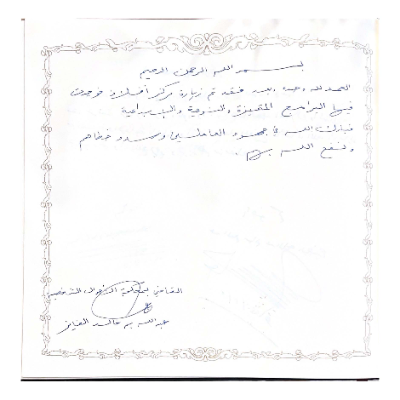 بسم الله الرحمن الرحيم
الحمد لله وحده وبعد فقد تم زيارة مركز أصدقاء فوجدت
فيها البرامج المتميزة والتوعية والإبداعية
فبارك الله في جهود العاملين وسدد خطاهم
ونفع الله بهم.
القاضي بمحكمة الأحوال الشخصية
عبدالله بن خالد